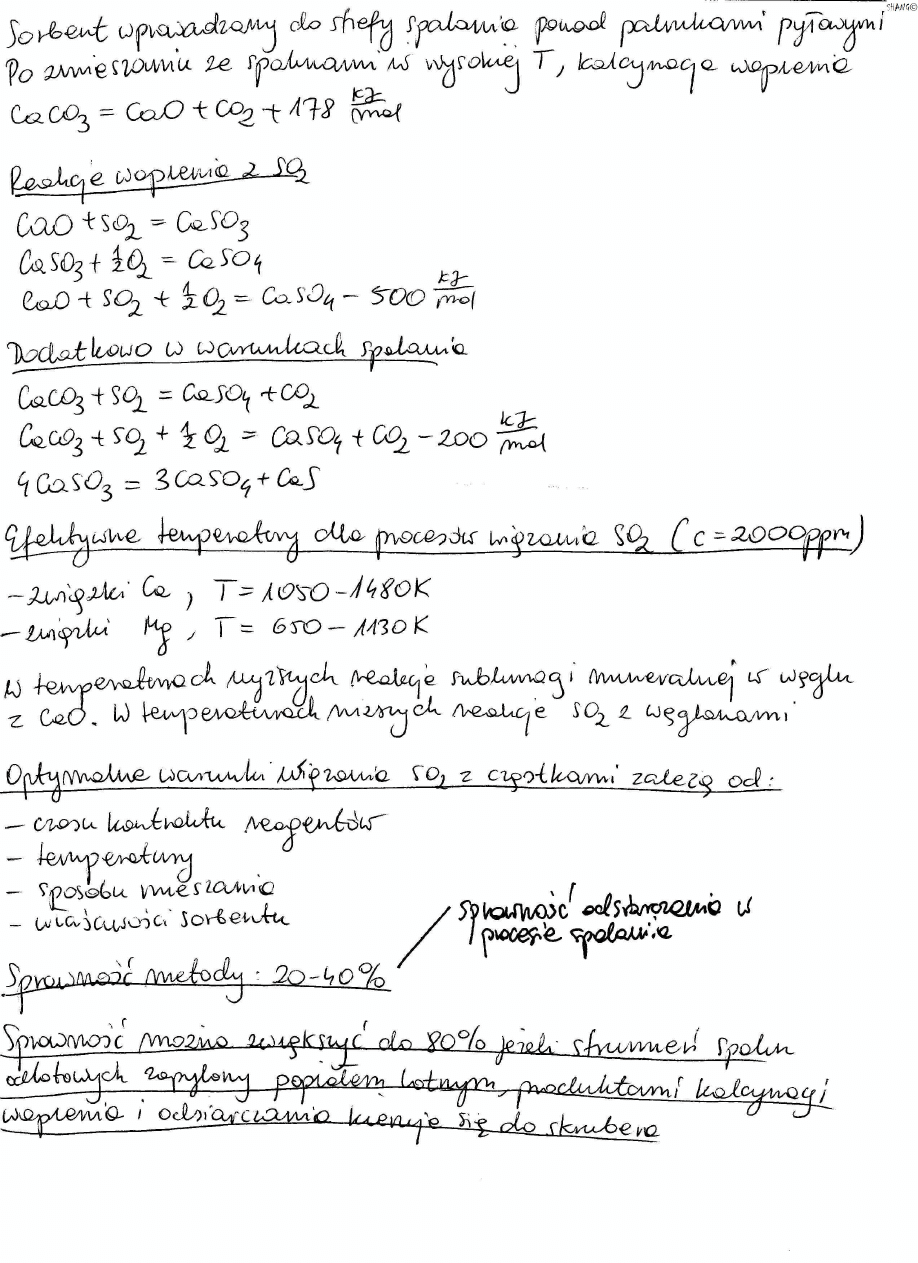 SHANG©
Sorbent wprowadzany do strefy spalania ponad palnikami pyłowymi
Po zmieszaniu ze spalinami w wysokiej T, kalcynacja wapienia
CaCO3 = CaO + CO2 + 178 kJ/mol
Reakcje wapienia z SO2
CaO + SO2 = CaSO3
CaSO3 + 1/2 O2 = CaSO4
CaO + SO2 + 1/2 O2 = CaSO4 - 500 kJ/mol
Dodatkowo w warunkach spalania
CaCO3 + SO2 = CaSO4 + CO2
CaCO3 + SO2 + 1/2 O2 = CaSO4 + CO2 - 200 kJ/mol
4CaSO3 = 3CaSO4 + CaS
Efektywne temperatury dla procesów wiązania SO2 (c = 2000ppm)
- związki Ca, T = 1050-1480K
- związki Mg, T = 650-1130K
W temperaturach wyższych reakcje sublimacji mineralnej w węglu
z CaO. W temperaturach niższych reakcje SO2 z węglanami
Optymalne warunki wiązania SO2 z cząstkami zależą od:
- czasu kontraktu reagentów
- temperatury
- sposobu mieszania
- właściwości sorbentu
sprawność odsiarczania w
procesie spalania
Sprawność metody: 20-40%
Sprawność można zwiększyć do 80% jeżeli strumień spalin
odlotowych zapylony popiołem lotnym, produktami kalcynacji
wapienia i odsiarczania kieruje się do skrubera